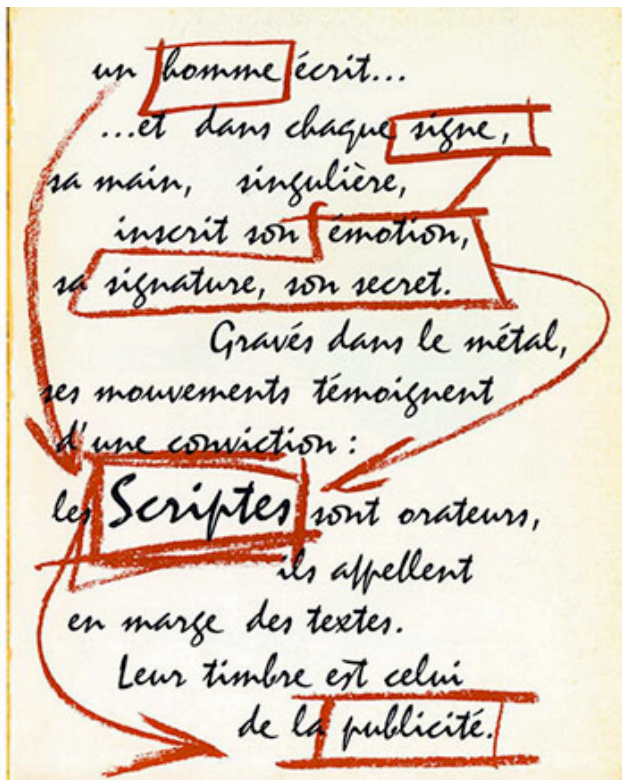 un homme écrit...
...et dans chaque signe,
sa main, singulière,
inscrit son émotion,
sa signature, son secret.
Gravés dans le métal,
ses mouvements témoignent
d'une conviction :
les Scriptes sont orateurs,
ils appellent
en marge des textes.
Leur timbre est celui
de la publicité.